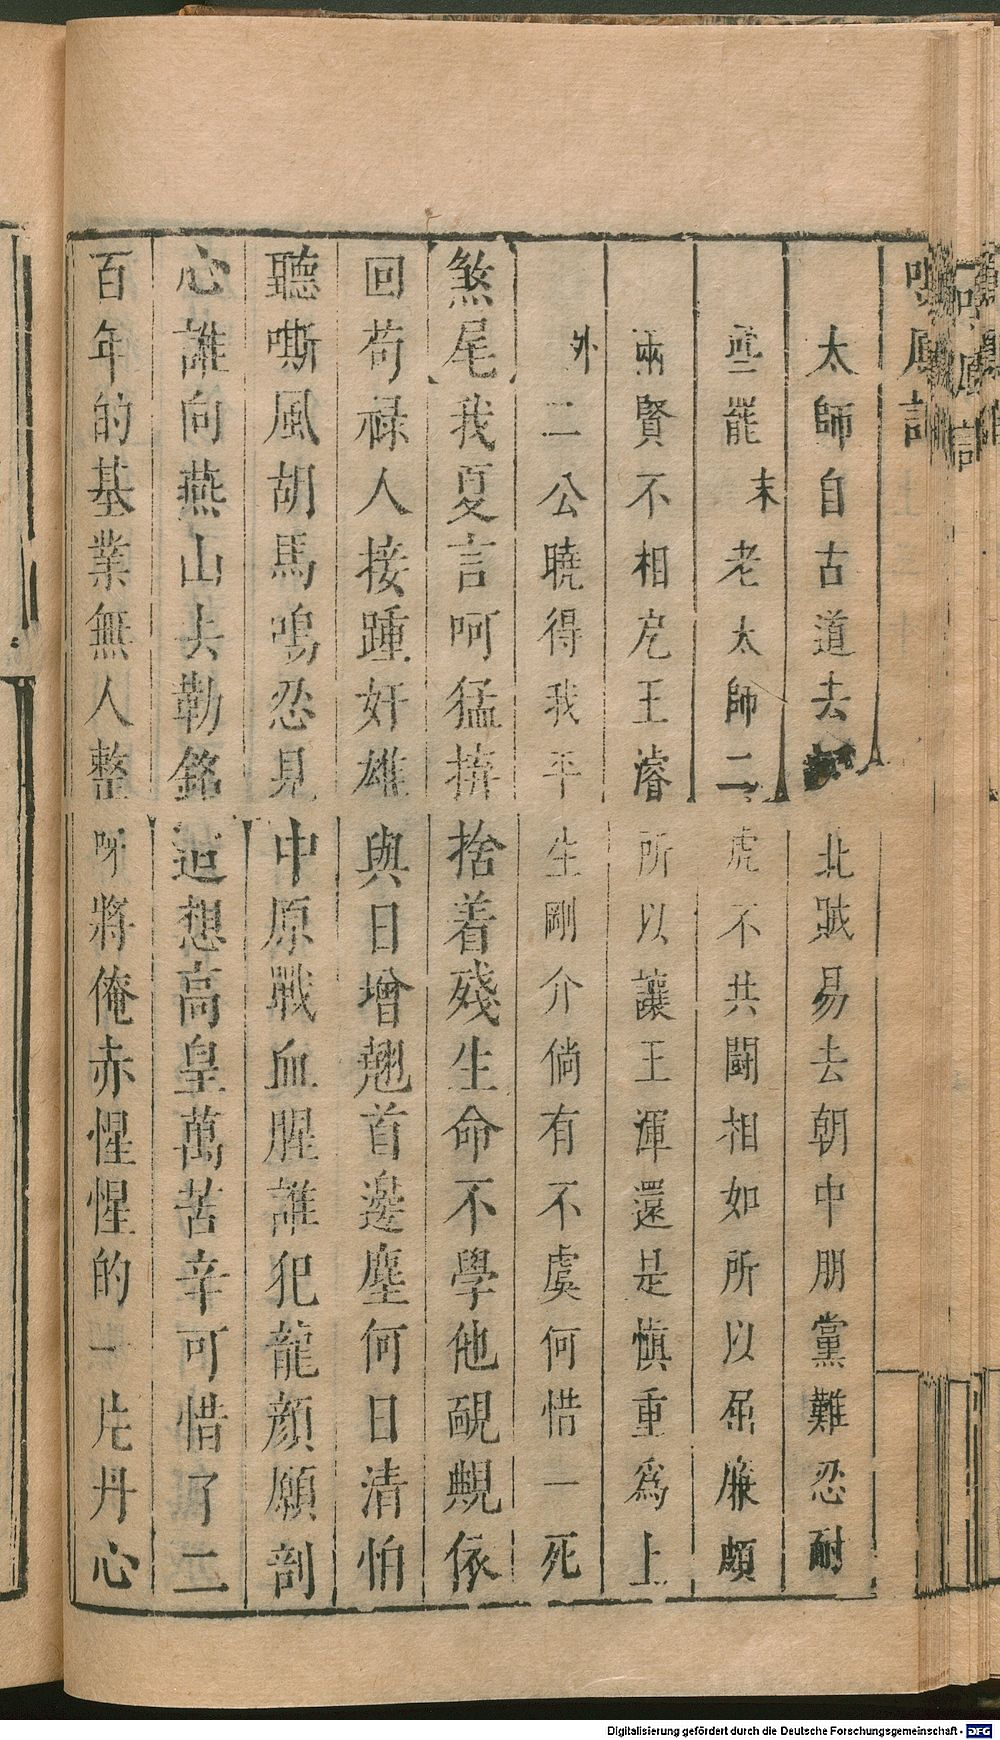 太師自古道去北賊易去朝中朋黨難忍耐
些罷末老太師二虎不共鬭相如所以屈廉頗
兩賢不相戹王濬所以讓王渾還是慎重爲上
外二公曉得我平生剛介倘有不虞何惜一死
煞尾我夏言呵猛拚捨着殘生命不學他靦䩄依
回苟祿人接踵奸雄與日增翹首邊塵何日清怕
聽嘶風胡馬鳴忍見中原戰血腥誰犯龍顔願剖
心誰向燕山去勒銘追想高皇萬苦辛可惜了二
百年的基業無人整呀將俺赤惺惺的一片丹心
鳴鳳記
Digitalisierung gefördert durch die Deutsche Forschungsgemeinschaft - DFG